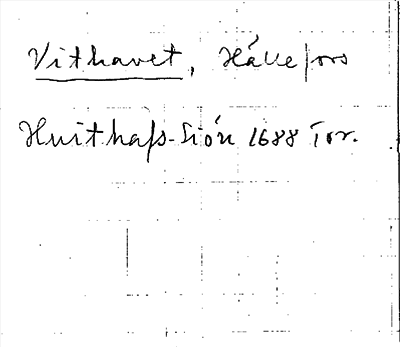 Vithavet, Hällefors
Huithafs-Siön 1688 Tor.